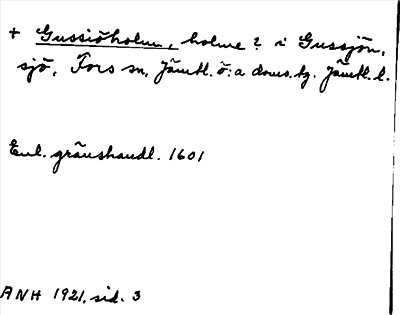 + Gussiöholm, holme ? i Gussjön,
sjö, Fors sn, Jämtl. ö:a doms.tg. Jämtl. l.
Enl. gränshandl. 1601
ANH 1921, sid. 3